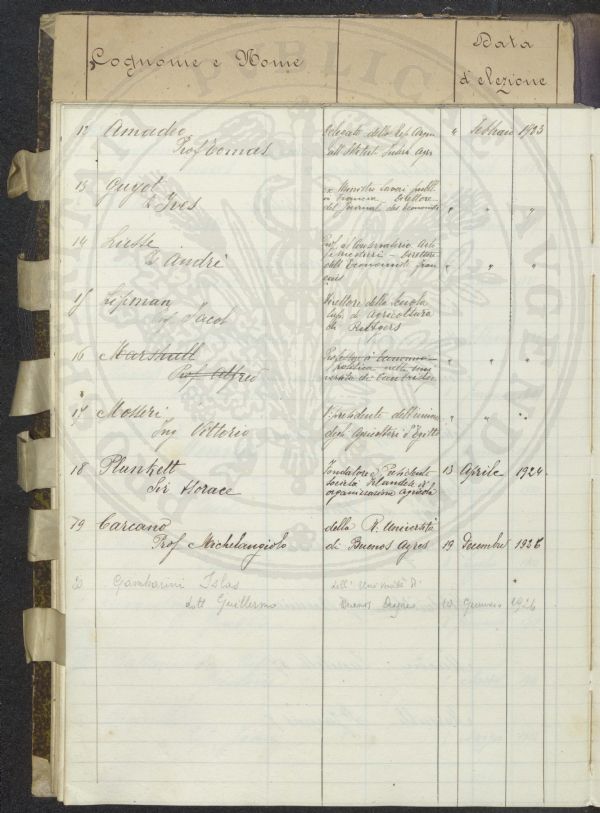 Cognome e Nome
Data
d'elezione
12 Amadeo Delegato della Rep. Argen. " Febbraio 1923
Prof. Tomas all'Istituto Intern. Agr.
13 Guyot ex Ministro Lavori pubbl.
Yves in Francia Direttore
del Journal des Economistes " " "
14 Liesse Prof. al Conservatorio Arti
André e Mestieri - Direttore " " "
dell'Economiste fran
cais
15 Lipman Direttore della Scuola
Jacob Sup. di Agricoltura " " "
di Rutgers
16 Marshall Professore di Economia " " "
Prof. Alfred politica nella Uni
versità di Cambridge
17 Mosseri Presidente dell'unione " " "
Ing Vittorio degli Agricoltori d'Egitto
18 Plunkett Fondatore e Presidente 13 Aprile 1924
Sir Horace Società Irlandese di
organizzazione agricola
19 Carcano della R. Università
Prof. Michelangiolo di Buenos Ayres 19 Decembre 1926
20 Gambarini Islas dell' Università di "
Dott Guillermo Buenos Ayres Gennaio